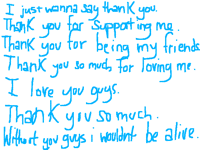 I just wanna say thank you.
Thank you for supporting me.
Thank you for being my friends
Thank you so much for loving me.
I love you guys.
Thank you so much.
Without you guys i wouldnt be alive.